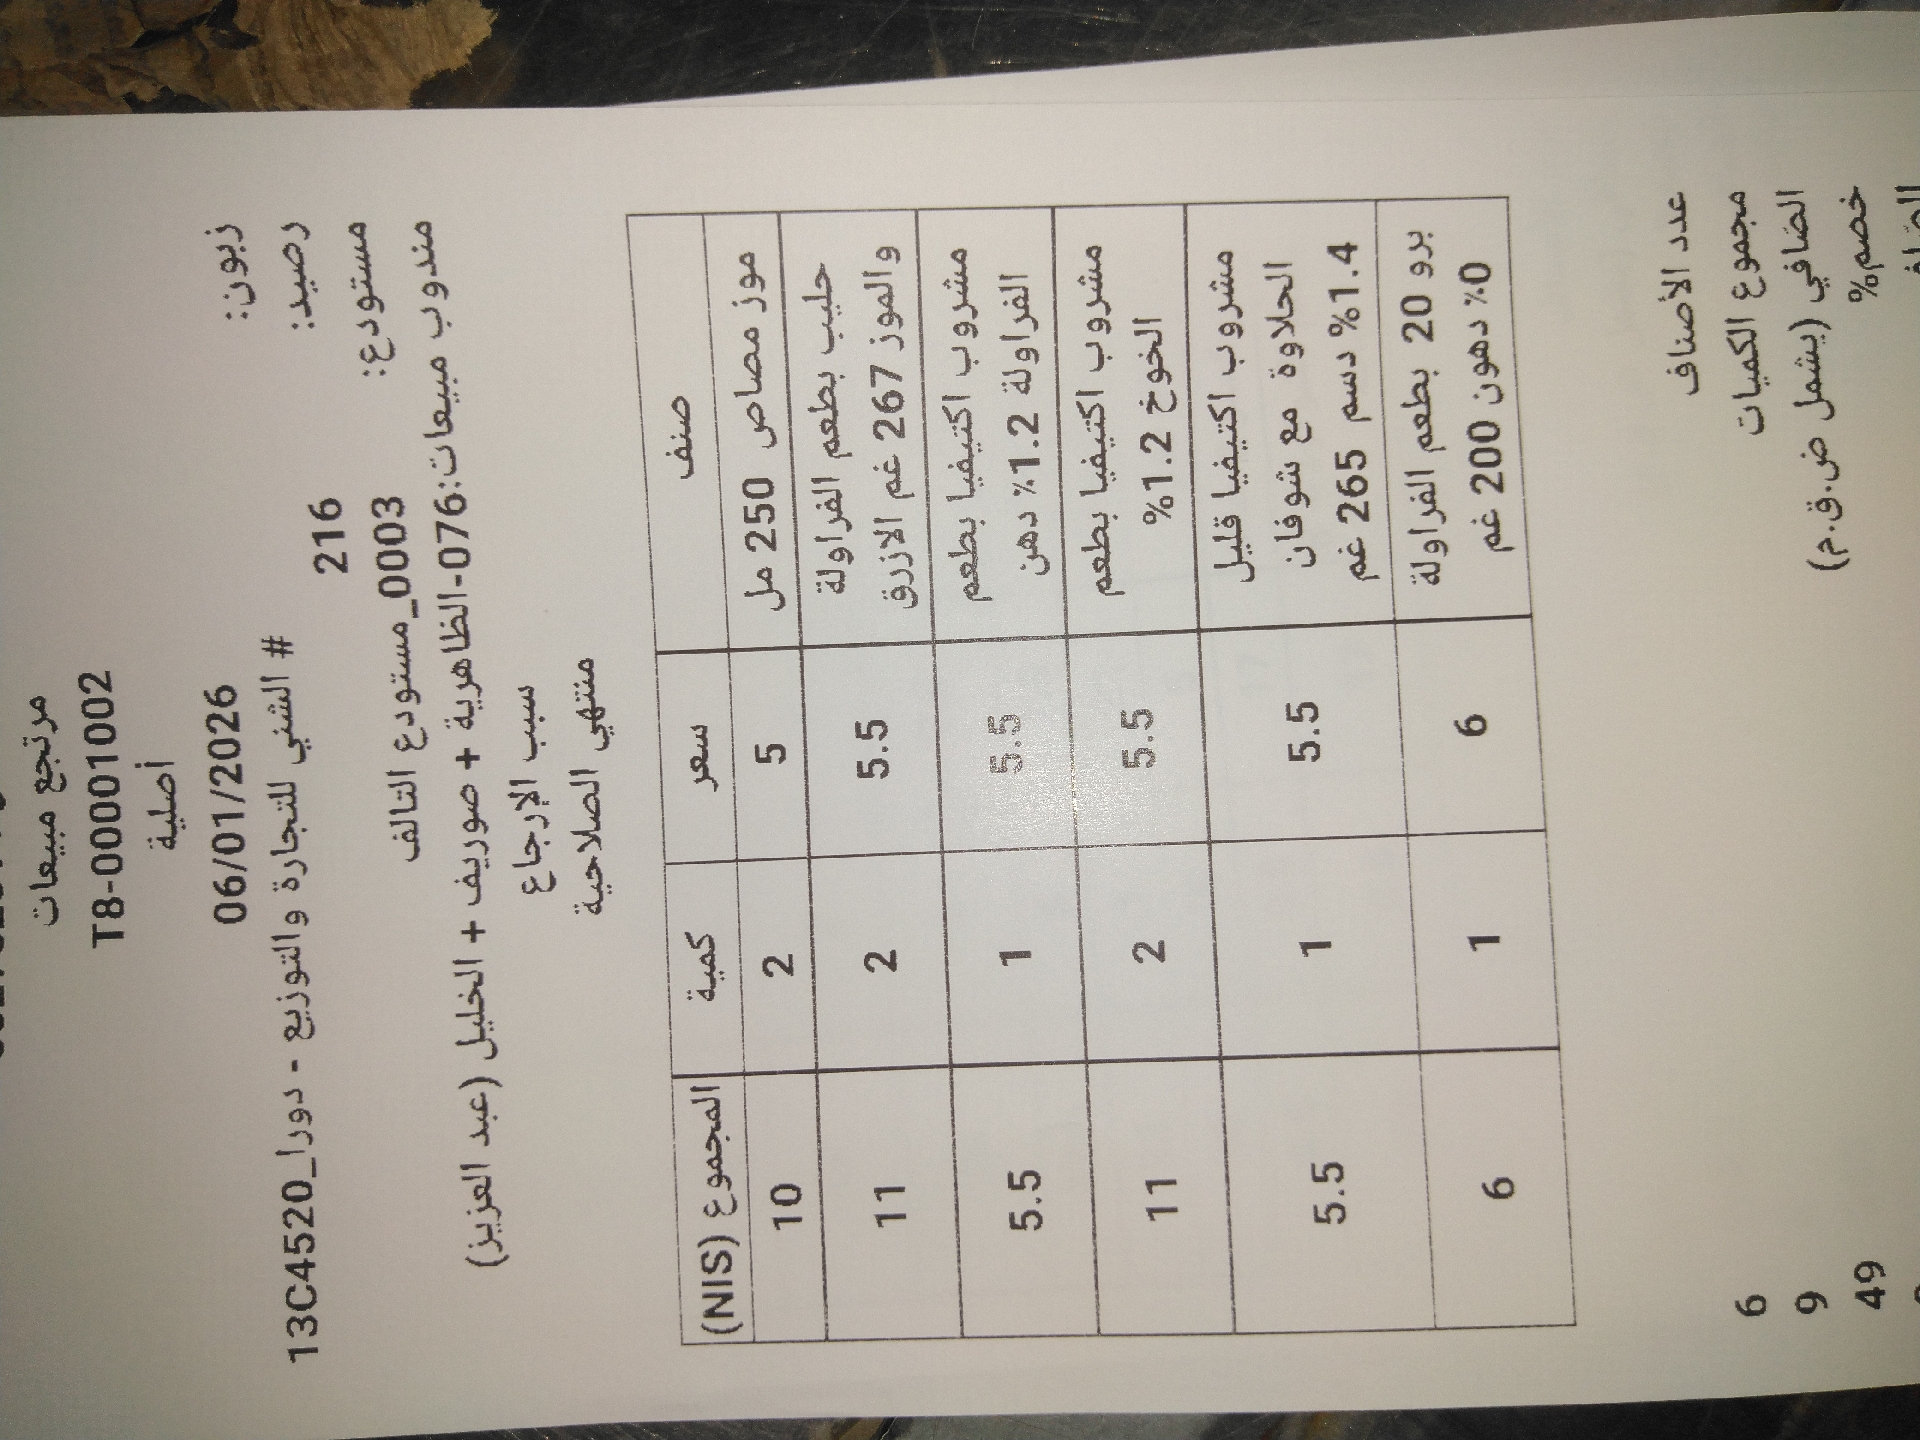 مرتجع مبيعات
T8-00001002
أصلية
06/01/2026
زبون: # الشني للتجارة والتوزيع - دورا_13C4520
رصيد: 216
مستودع: 0003_مستودع التالف
مندوب مبيعات:076-الظاهرية + صوريف + الخليل (عبد العزيز)
سبب الإرجاع
منتهي الصلاحية
صنف سعر كمية المجموع (NIS)
موز مصاص 250 مل 5 2 10
حليب بطعم الفراولة
والموز 267 غم الازرق 5.5 2 11
مشروب اكتيفيا بطعم
الفراولة 1.2٪ دهن 5.5 1 5.5
مشروب اكتيفيا بطعم
الخوخ 1.2% 5.5 2 11
مشروب اكتيفيا قليل
الحلاوة مع شوفان
1.4% دسم 265 غم 5.5 1 5.5
برو 20 بطعم الفراولة
0٪ دهون 200 غم 6 1 6
عدد الأصناف 6
مجموع الكميات 9
الصّافي (يشمل ض.ق.م) 49
خصم%